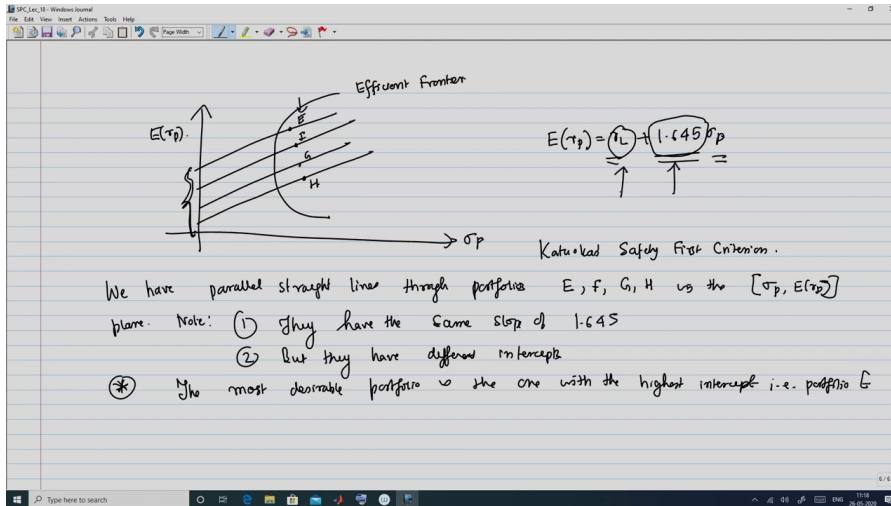 SPC_Lec_18 - Windows Journal
File Edit View Insert Actions Tools Help
Page Width
Efficient Frontier
E(rp).
E
I
G
H
σp
E(rp) = rL + 1.645 σp
Kataokas Safety First Criterion.
We have parallel straight lines through portfolios E, F, G, H in the [σp, E(rp)]
plane. Note: ① They have the same slop of 1.645
② But they have different intercepts
* The most desirable portfolio is the one with the highest intercept i.e. portfolio E
6 / 6
Type here to search
ENG
11:18
26-05-2020